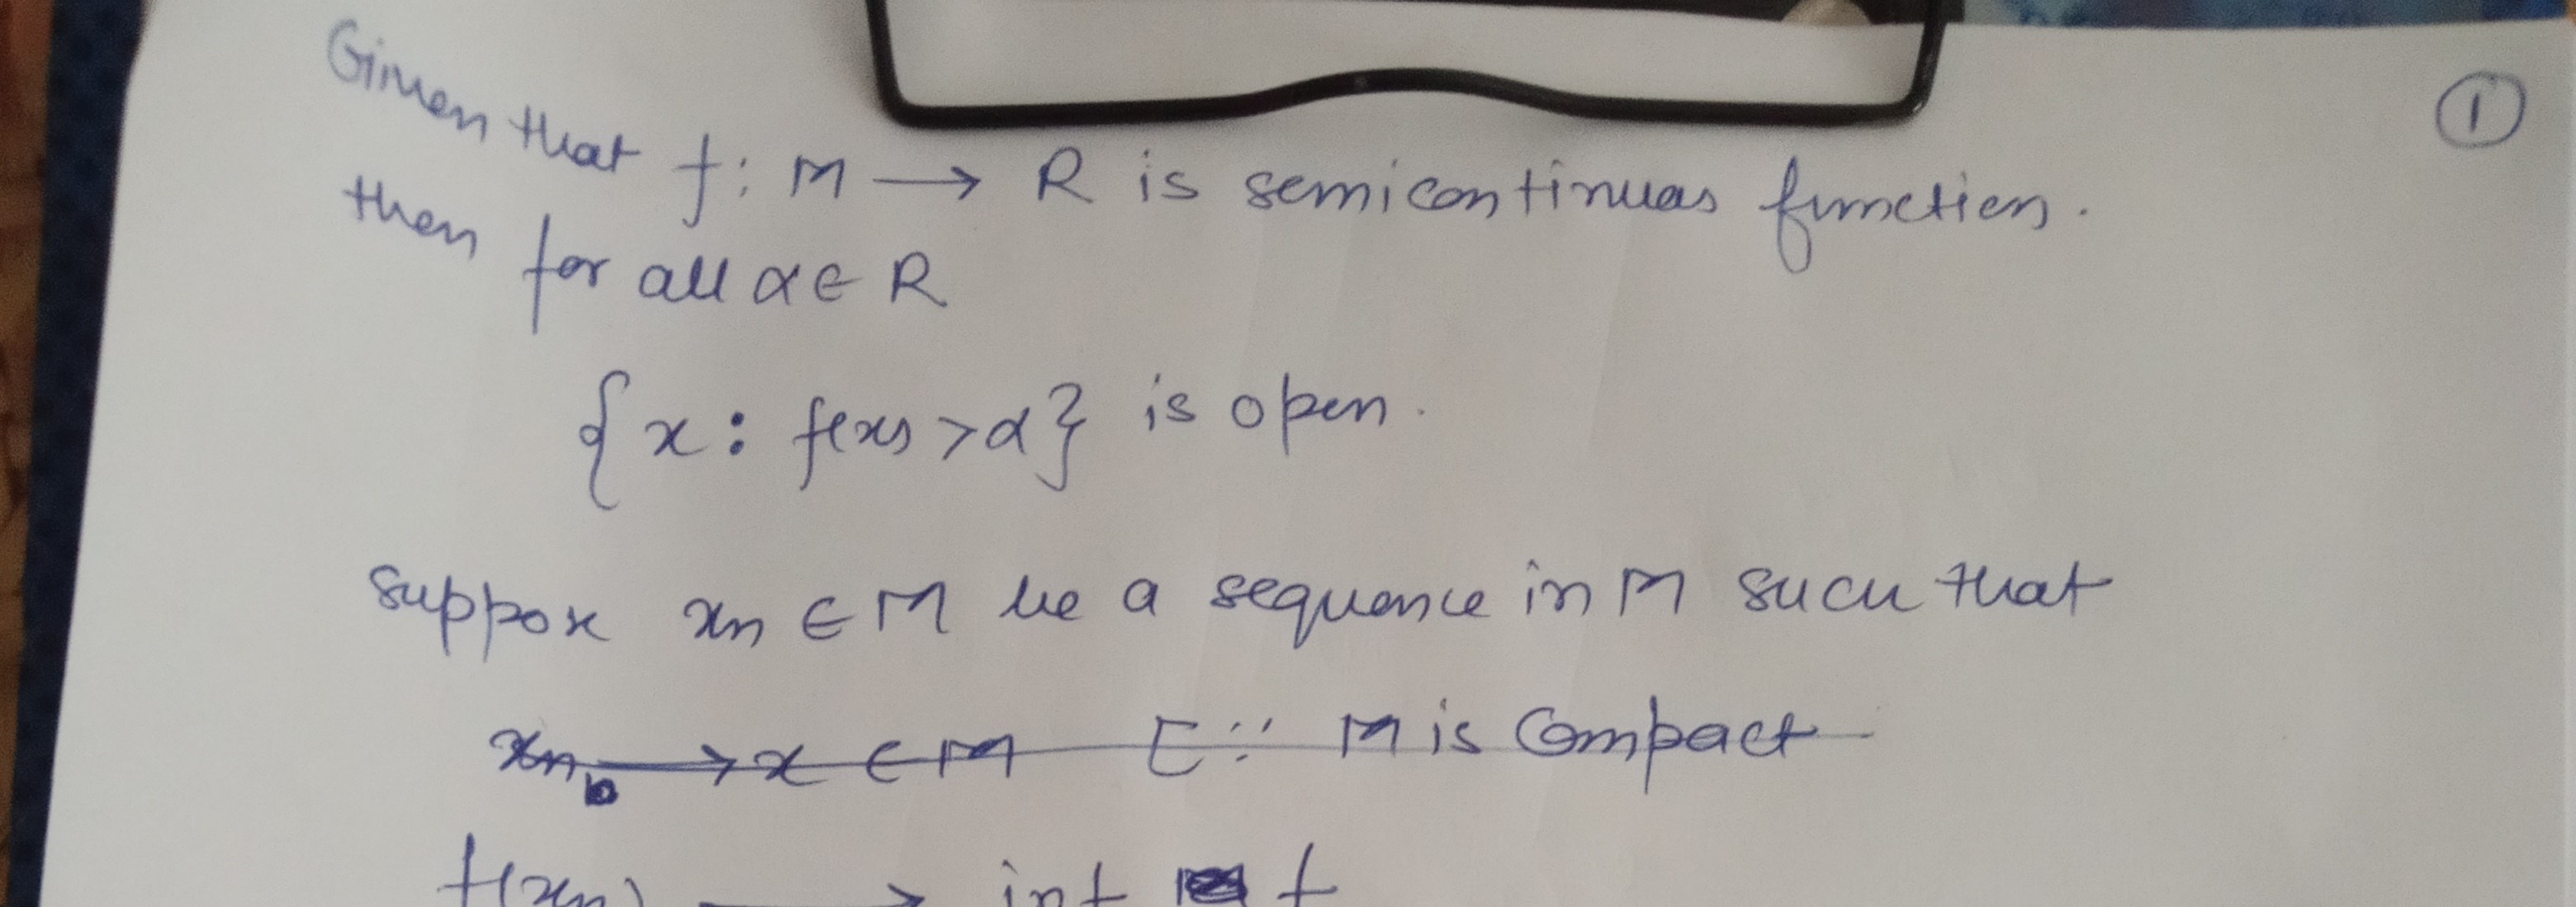 ①
Given that f : M → R is semicontinuas function.
then for all α ∈ R
{x : f(x) > α} is open.
suppose xn ∈ M be a sequence in M such that
xn → x ∈ M [∵ M is Compact
f(xn) → inf f